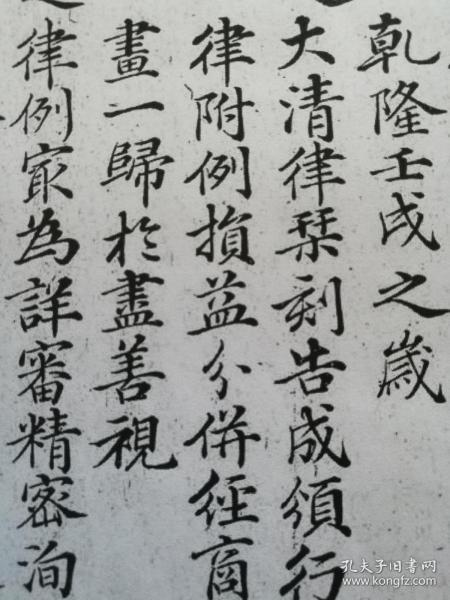 乾隆壬戌之歲
大清律栞刻告成頒行
律附例損益分併經啇
畫一歸於盡善視
律例㝡為詳審精密洵
孔夫子旧书网
www.kongfz.com